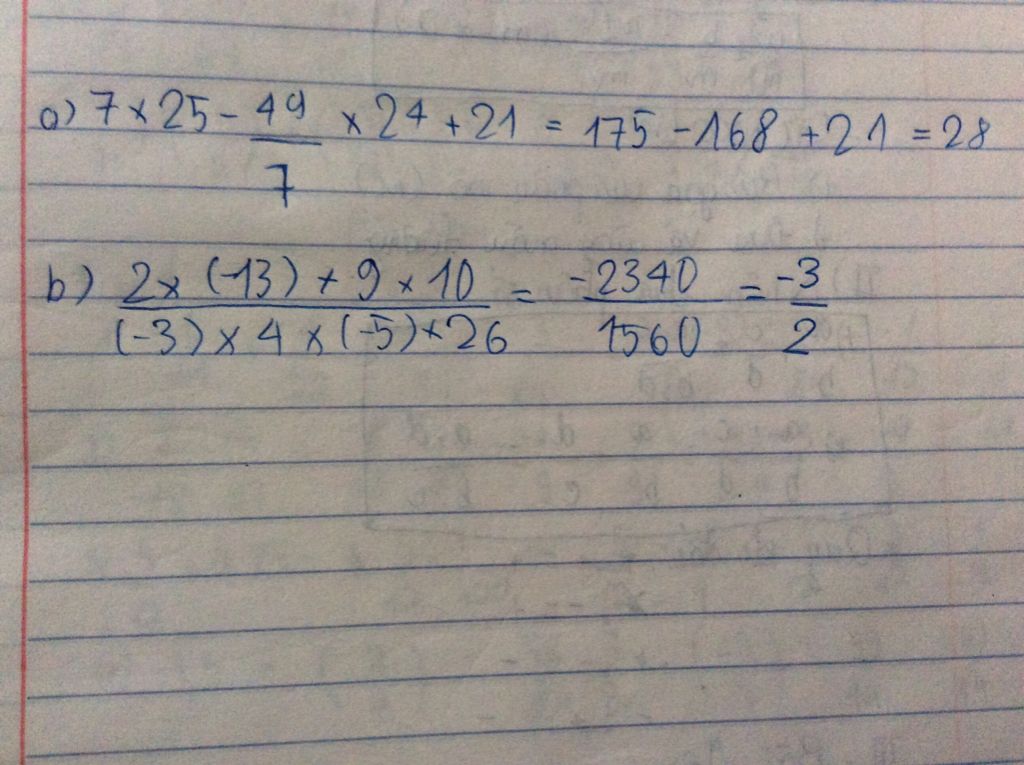 a) 7 × 25 - 49/7 × 24 + 21 = 175 - 168 + 21 = 28
b) 2 × (-13) × 9 × 10 / (-3) × 4 × (-5) × 26 = -2340/1560 = -3/2